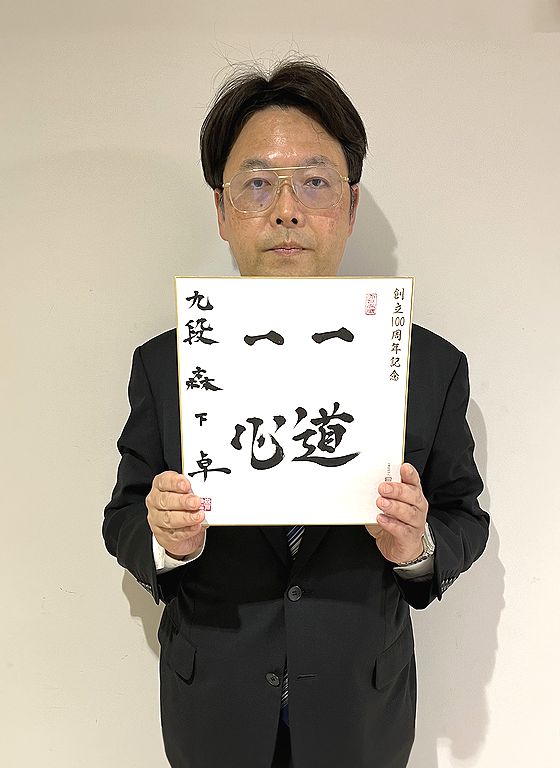 創立100周年記念
一道
一心
九段 森下卓